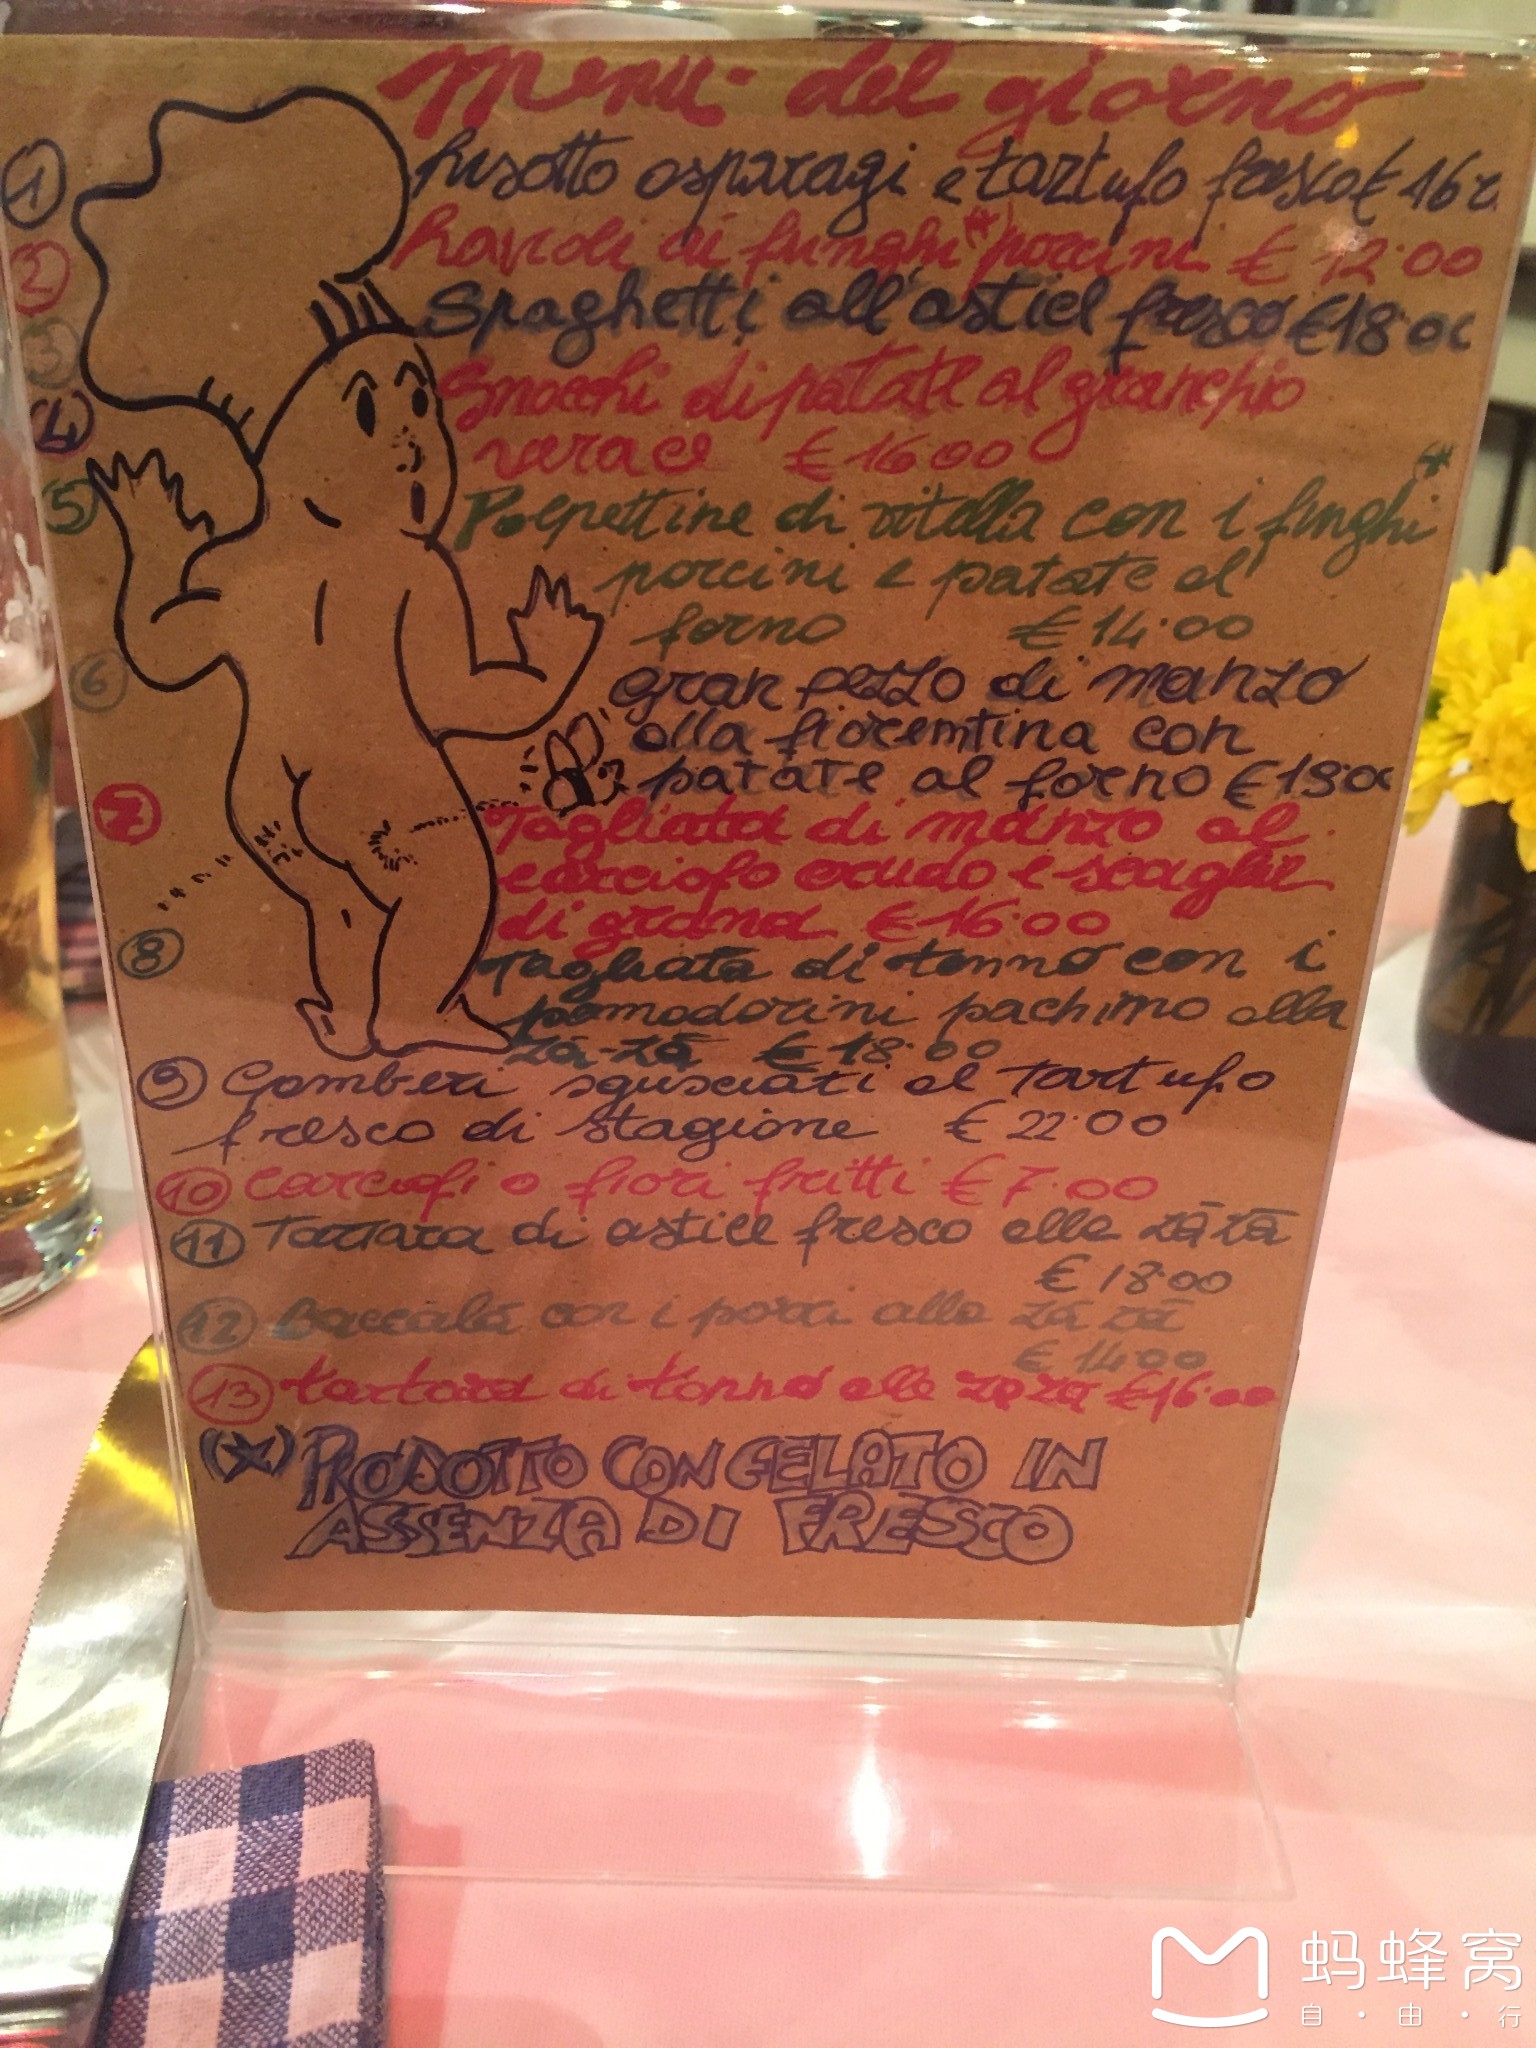 Menu del giorno
1 Risotto asparagi e tartufo fresco € 16
2 Ravioli di funghi(*) porcini € 12.00
3 Spaghetti all'astice fresco € 18.00
4 Gnocchi di patate al granchio
verace € 16.00
5 Polpettine di vitella con i funghi*
porcini e patate al
forno € 14.00
6 Gran pezzo di manzo
alla fiorentina con
patate al forno €
7 Tagliata di manzo al
carciofo crudo e scaglie
di grana € 16.00
8 Tagliata di tonno con i
pomodorini pachino alla
zà-zà € 18.00
9 Gamberi sgusciati al tartufo
fresco di stagione € 22.00
10 Carciofi o fiori fritti € 7.00
11 Tartara di astice fresco alla zà zà
€ 18.00
12 Baccalà con i porri alla zà zà
€ 14.00
13 tartara di tonno alla za za € 16.00
(*) PRODOTTO CONGELATO IN
ASSENZA DI FRESCO
蚂蜂窝
自·由·行